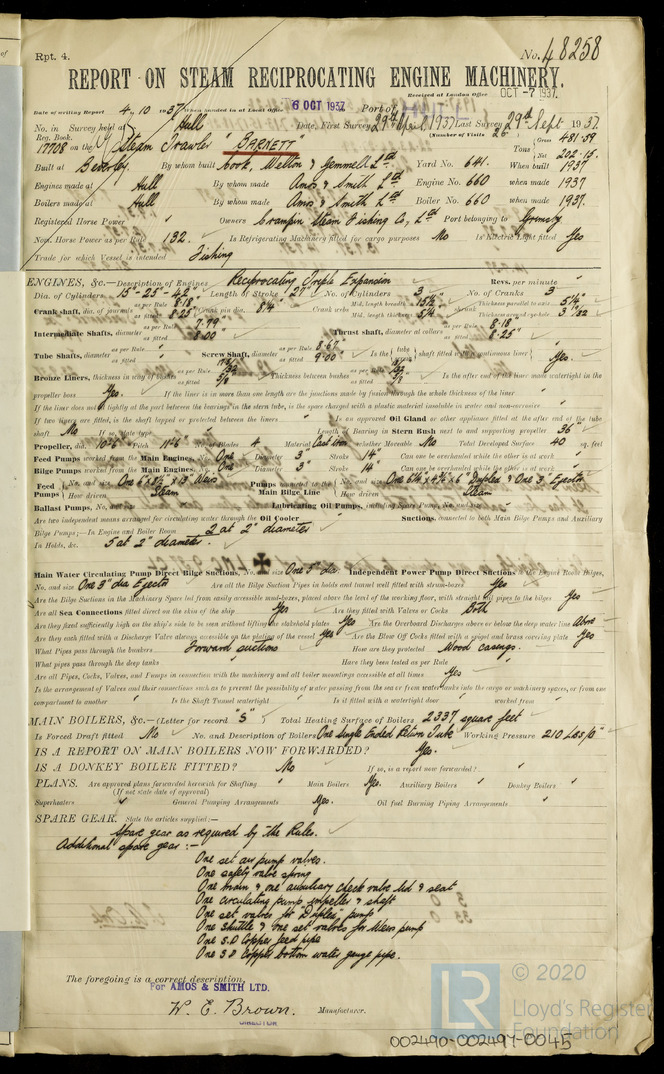 Rpt. 4.
No. 48258
REPORT ON STEAM RECIPROCATING ENGINE MACHINERY.
Received at London Office OCT -7 1937
Date of writing Report 4.10.1937 When handed in at Local Office 6 OCT 1937 Port of
No. in Survey held at Hull Date, First Survey 29th April 1937 Last Survey 29th Sept. 1937
Reg. Book. (Number of Visits
7708 on the Steam Trawler "BARNETT" Tons Gross 481.59 Net 202.15
Built at Beverley. By whom built Cook, Welton & Gemmell Ltd Yard No. 641. When built 1937
Engines made at Hull By whom made Amos & Smith Ltd Engine No. 660 when made 1937
Boilers made at Hull By whom made Amos & Smith Ltd Boiler No. 660 when made 1937.
Registered Horse Power " Owners Crampin Steam Fishing Co, Ltd Port belonging to Grimsby
Nom. Horse Power as per Rule 132. Is Refrigerating Machinery fitted for cargo purposes No Is Electric Light fitted Yes
Trade for which Vessel is intended Fishing
ENGINES, &c.—Description of Engines Reciprocating Triple Expansion Revs. per minute "
Dia. of Cylinders 15"-25"-42" Length of Stroke 27" No. of Cylinders 3 No. of Cranks 3
Crank shaft, dia. of journals as per Rule 8.18" as fitted 8.25" Crank pin dia. 8¼" Crank webs Mid. length breadth 15½" Mid. length thickness 5¼" shrunk Thickness parallel to axis 5¼" Thickness around eye-hole 3 7/32
Intermediate Shafts, diameter as per Rule 7.79" as fitted 8.00" Thrust shaft, diameter at collars as per Rule 8.18" as fitted 8.25"
Tube Shafts, diameter as per Rule " as fitted " Screw Shaft, diameter as per Rule 8.67" as fitted 9.00" Is the tube shaft fitted with a continuous liner Yes.
Bronze Liners, thickness in way of bushes as per Rule as fitted 5/8 Thickness between bushes as per Rule as fitted Is the after end of the liner made watertight in the
propeller boss Yes. If the liner is in more than one length are the junctions made by fusion through the whole thickness of the liner "
If the liner does not fit tightly at the part between the bearings in the stern tube, is the space charged with a plastic material insoluble in water and non-corrosive "
If two liners are fitted, is the shaft lapped or protected between the liners " Is an approved Oil Gland or other appliance fitted at the after end of the tube
shaft No If so, state type " Length of Bearing in Stern Bush next to and supporting propeller 36"
Propeller, dia. 10'-6" Pitch 11'-6 No. of Blades 4 Material Cast Iron whether Moveable No Total Developed Surface 40 sq. feet
Feed Pumps worked from the Main Engines, No. One Diameter 3" Stroke 14" Can one be overhauled while the other is at work "
Bilge Pumps worked from the Main Engines, No. One Diameter 3" Stroke 14" Can one be overhauled while the other is at work "
Feed Pumps No. and size One 6"x8½"x13" Weirs How driven Steam Pumps connected to the Main Bilge Line No. and size One 6¼"x4¾"x6" Duplex & One 3" Ejector How driven Steam
Ballast Pumps, No. Lubricating Oil Pumps, including Spare Pump, No. and size
Are two independent means arranged for circulating water through the Oil Cooler " Suctions, connected to both Main Bilge Pumps and Auxiliary
Bilge Pumps;—In Engine and Boiler Room 2 at 2" diameter
In Holds, &c. 5 at 2" diameter.
Main Water Circulating Pump Direct Bilge Suctions, No. and size One 5" dia. Independent Power Pump Direct Suctions to the Engine Room Bilges,
No. and size One 3" dia Ejector Are all the Bilge Suction Pipes in holds and tunnel well fitted with strum-boxes Yes
Are the Bilge Suctions in the Machinery Space led from easily accessible mud-boxes, placed above the level of the working floor, with straight tail pipes to the bilges Yes
Are all Sea Connections fitted direct on the skin of the ship Yes Are they fitted with Valves or Cocks Both
Are they fixed sufficiently high on the ship's side to be seen without lifting the stokehold plates Yes Are the Overboard Discharges above or below the deep water line Above
Are they each fitted with a Discharge Valve always accessible on the plating of the vessel Yes Are the Blow Off Cocks fitted with a spigot and brass covering plate Yes
What Pipes pass through the bunkers Forward suctions How are they protected Wood casings.
What pipes pass through the deep tanks " Have they been tested as per Rule "
Are all Pipes, Cocks, Valves, and Pumps in connection with the machinery and all boiler mountings accessible at all times Yes
Is the arrangement of Valves and their connections such as to prevent the possibility of water passing from the sea or from water tanks into the cargo or machinery spaces, or from one
compartment to another " Is the Shaft Tunnel watertight " Is it fitted with a watertight door " worked from "
MAIN BOILERS, &c.—(Letter for record "S" Total Heating Surface of Boilers 2337 square feet
Is Forced Draft fitted No No. and Description of Boilers One Single Ended Return Tube Working Pressure 210 Lbs/□"
IS A REPORT ON MAIN BOILERS NOW FORWARDED? Yes.
IS A DONKEY BOILER FITTED? No If so, is a report now forwarded? "
PLANS. Are approved plans forwarded herewith for Shafting " Main Boilers Yes. Auxiliary Boilers " Donkey Boilers "
(If not state date of approval)
Superheaters General Pumping Arrangements Yes. Oil fuel Burning Piping Arrangements "
SPARE GEAR. State the articles supplied:—
Spare gear as required by the Rules.
Additional spare gear :-
One set air pump valves.
One safety valve spring
One main & one auxiliary check valve lid & seat
One circulating pump impeller & shaft
One set valves for "Duplex" pump
One shuttle & one set valves for Weirs pump
One S.D Copper feed pipe
One S.D Copper bottom water gauge pipe.
The foregoing is a correct description,
For AMOS & SMITH LTD.
W. E. Brown. Manufacturer.
DIRECTOR
LR © 2020
Lloyd's Register
Foundation
002490-002497-0045